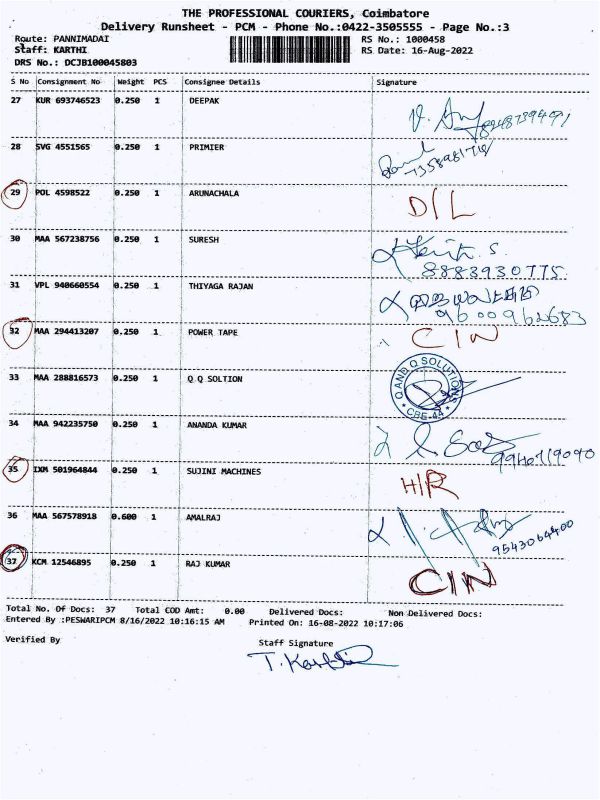 THE PROFESSIONAL COURIERS, Coimbatore
Delivery Runsheet - PCM - Phone No.:0422-3505555 - Page No.:3
Route: PANNIMADAI RS No.: 1000458
Staff: KARTHI RS Date: 16-Aug-2022
DRS No.: DCJB100045803
S No Consignment No Weight PCS Consignee Details Signature
27 KUR 693746523 0.250 1 DEEPAK
28 SVG 4551565 0.250 1 PRIMIER
29 POL 4598522 0.250 1 ARUNACHALA D/L
30 MAA 567238756 0.250 1 SURESH
8883930775
31 VPL 940660554 0.250 1 THIYAGA RAJAN
9600962683
32 MAA 294413207 0.250 1 POWER TAPE C/N
33 MAA 288816573 0.250 1 Q Q SOLTION Q AND Q SOLUTIONS * CBE-44 *
34 MAA 942235750 0.250 1 ANANDA KUMAR
35 IXM 501964844 0.250 1 SUJINI MACHINES H/R
36 MAA 567578918 0.600 1 AMALRAJ
9543064400
37 KCM 12546895 0.250 1 RAJ KUMAR C/N
Total No. Of Docs: 37 Total COD Amt: 0.00 Delivered Docs: Non Delivered Docs:
Entered By :PESWARIPCM 8/16/2022 10:16:15 AM Printed On: 16-08-2022 10:17:06
Verified By Staff Signature
T. Karthi